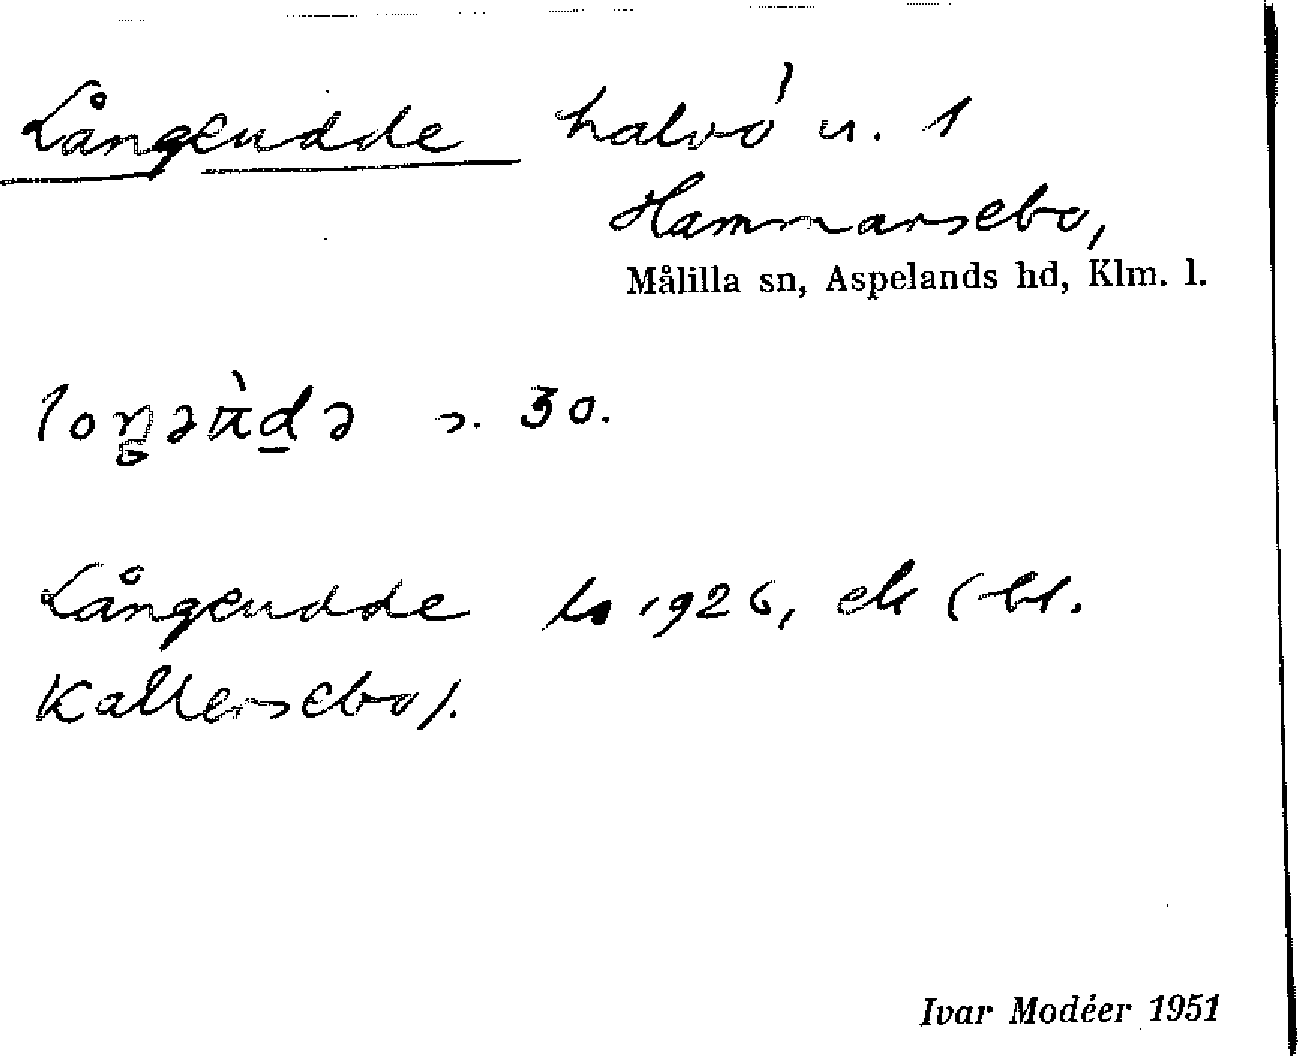 Långeudde halvö u. 1
Hammarsebo,
Målilla sn, Aspelands hd, Klm. l.
s. 30.
Långeudde ls 1926, ek (bl.
Kallersebo).
Ivar Modéer 1951